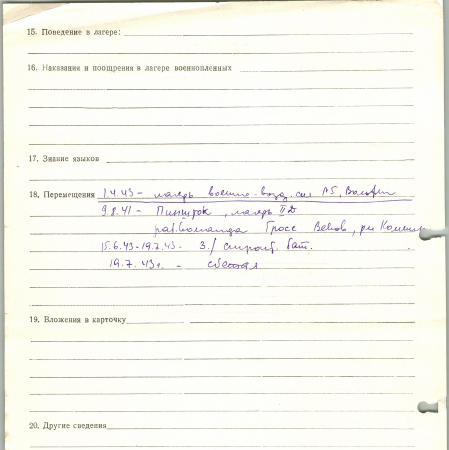 15. Поведение в лагере:
16. Наказания и поощрения в лагере военнопленных
17. Знание языков
18. Перемещения 1.4.43 - лагерь военно-возд. сил №5,
9.8.41 - лагерь II D
рабкоманда Гросс
15.6.43-19.7.43- 3./ строит. бат.
19.7.43г. - сбежал
19. Вложения в карточку
20. Другие сведения